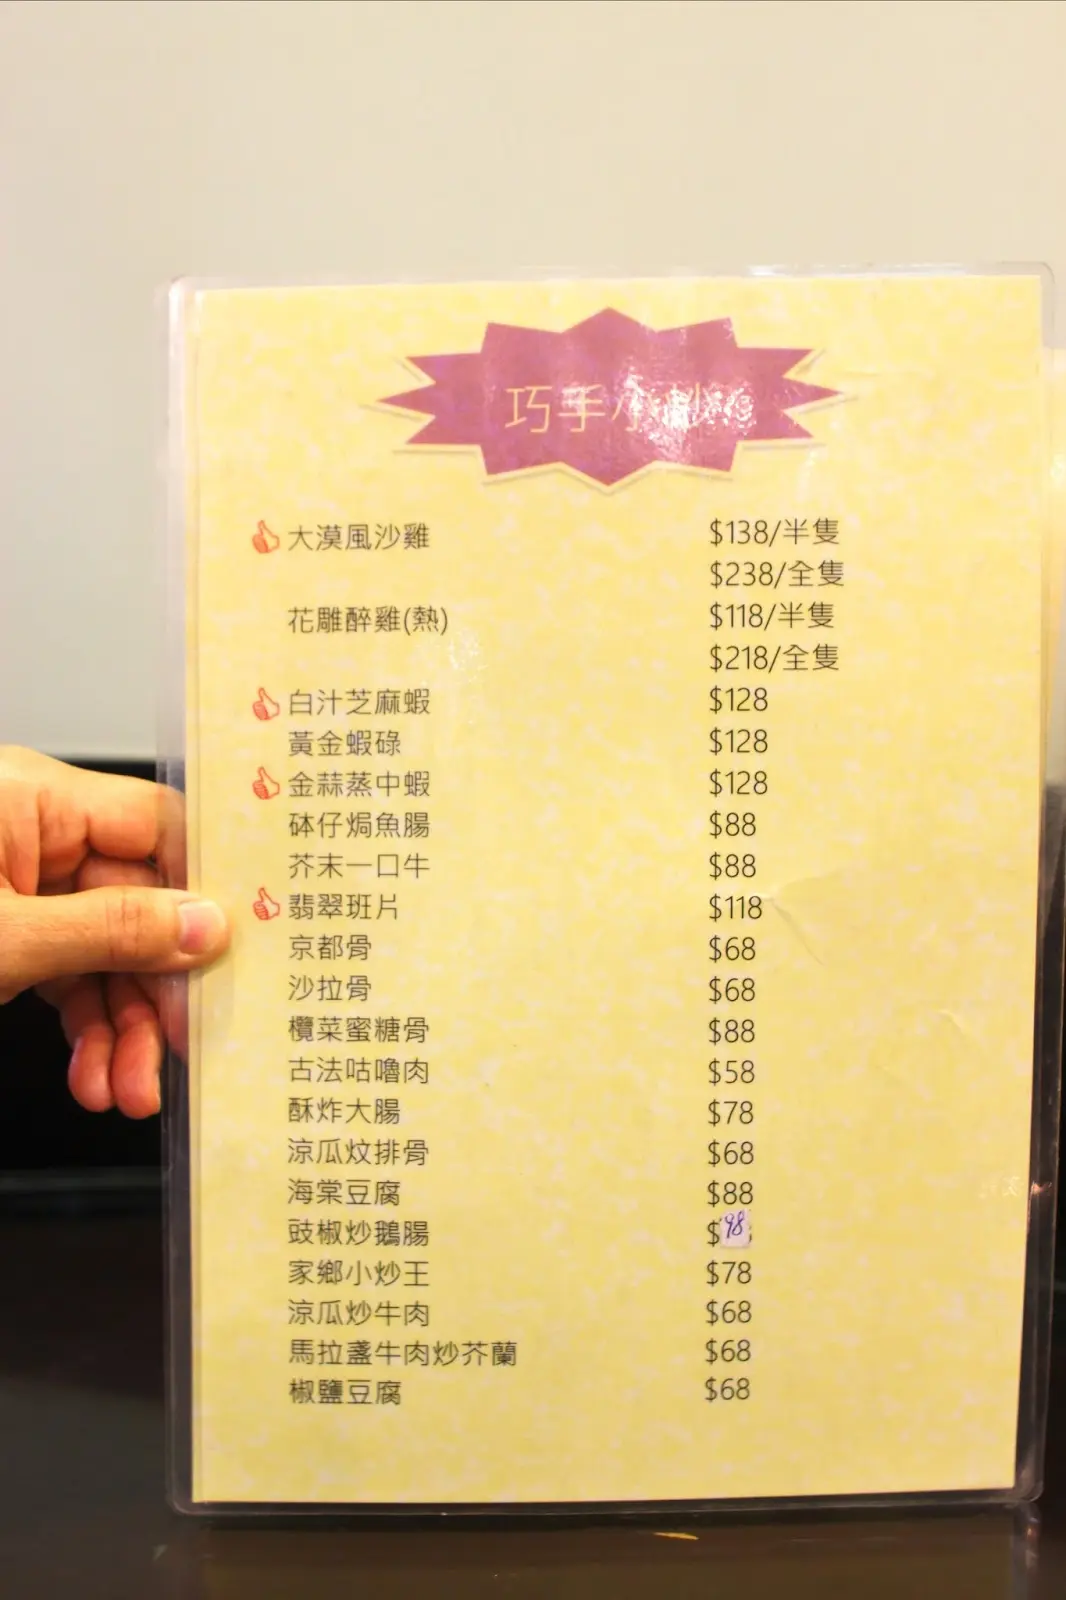 巧手小炒
大漠風沙雞 $138/半隻
$238/全隻
花雕醉雞(熱) $118/半隻
$218/全隻
白汁芝麻蝦 $128
黃金蝦碌 $128
金蒜蒸中蝦 $128
砵仔焗魚腸 $88
芥末一口牛 $88
翡翠班片 $118
京都骨 $68
沙拉骨 $68
欖菜蜜糖骨 $88
古法咕嚕肉 $58
酥炸大腸 $78
涼瓜炆排骨 $68
海棠豆腐 $88
豉椒炒鵝腸 $98
家鄉小炒王 $78
涼瓜炒牛肉 $68
馬拉盞牛肉炒芥蘭 $68
椒鹽豆腐 $68